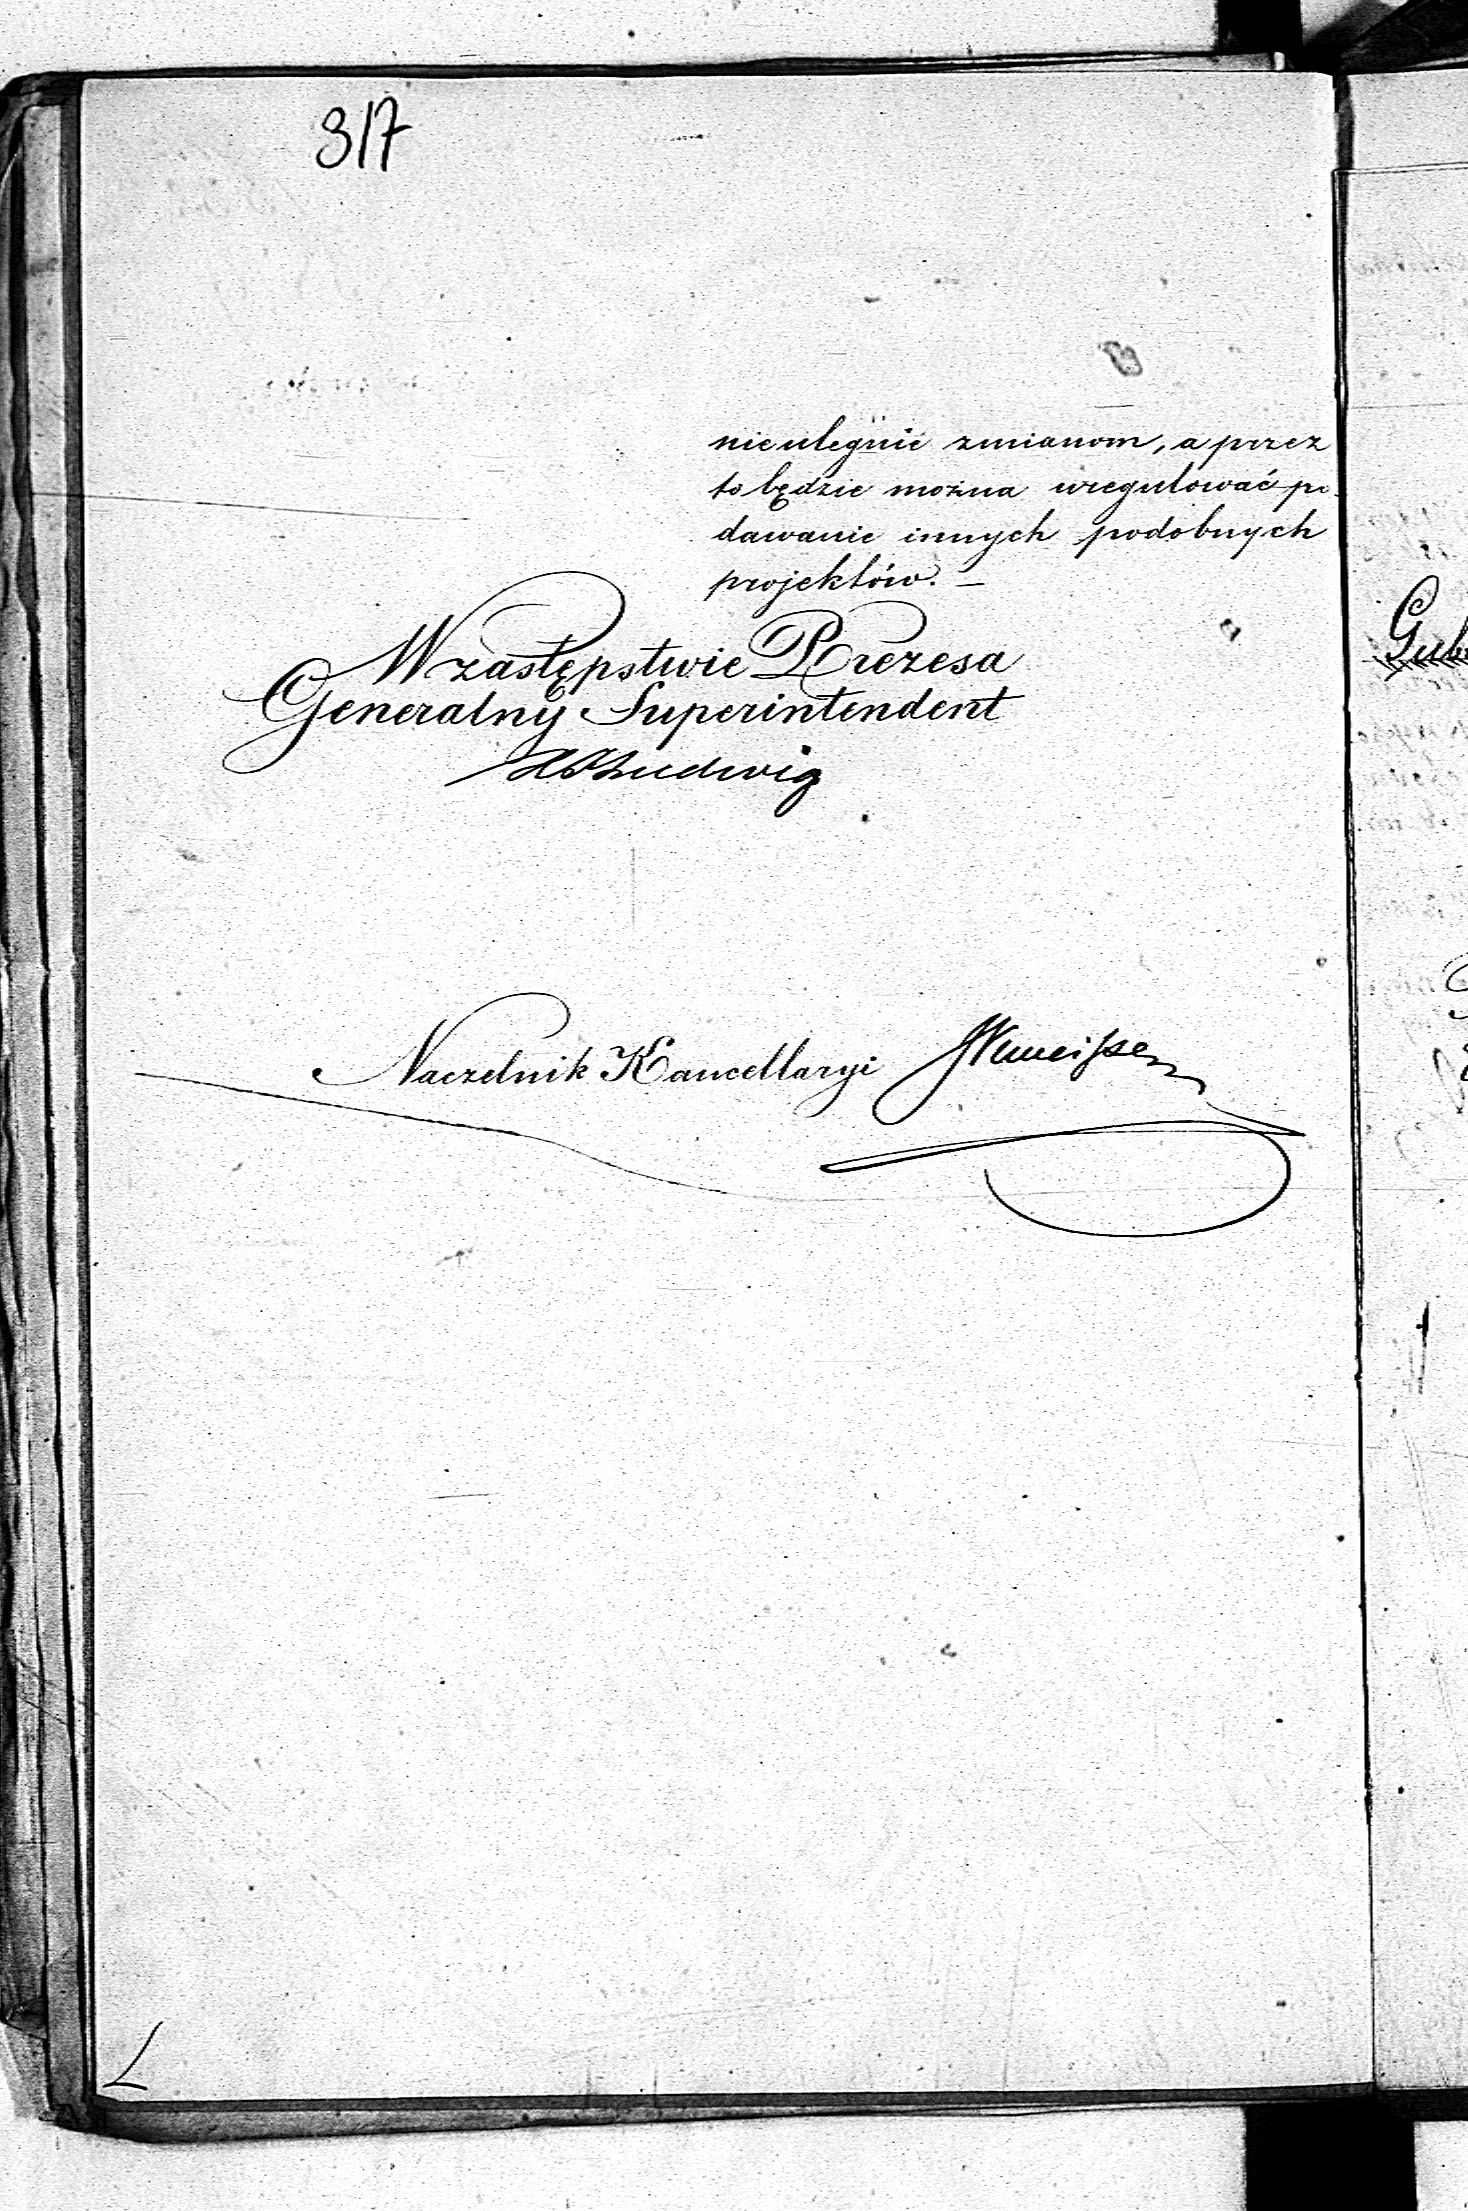 317
nie ulegnie zmianom, a przez
to będzie można uregulować po-
dawanie innych podobnych
projektów. –
W zastępstwie Prezesa
Generalny Superintendent
Ludwig
Naczelnik Kancellaryi
L